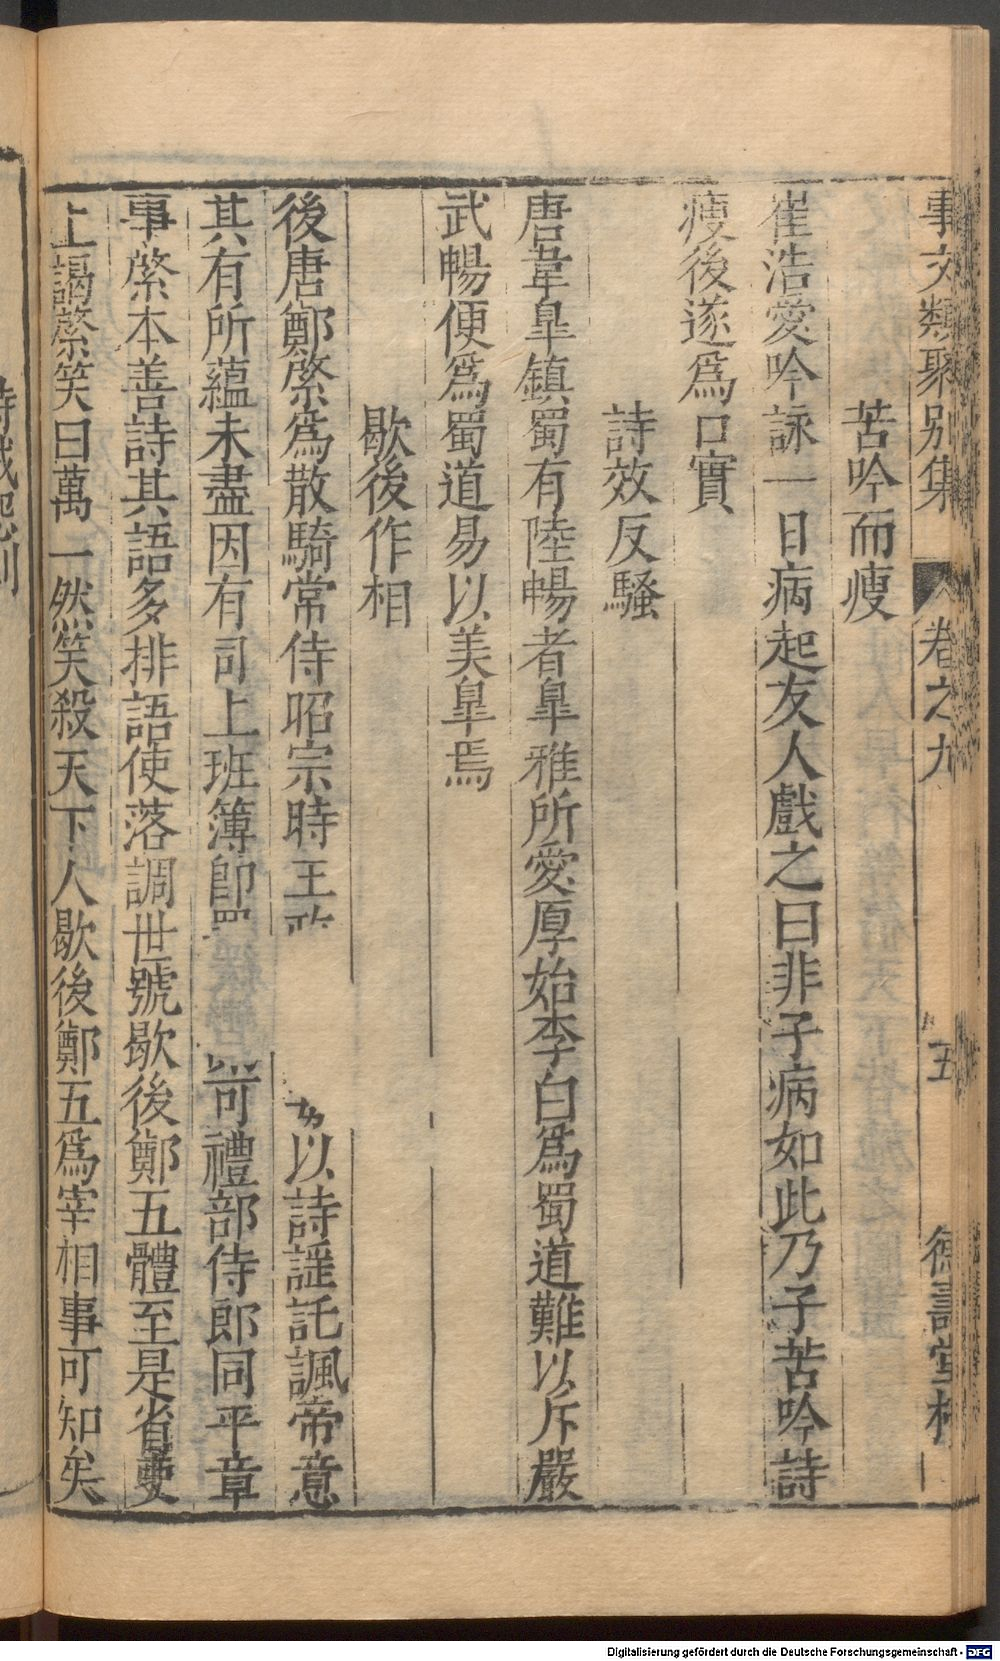 事文類聚別集 卷之九 五 德壽堂梓
苦吟而瘦
崔浩愛吟詠一日病起友人戲之曰非子病如此乃子苦吟詩
瘦後遂爲口實
詩效反騷
唐韋臯鎮蜀有陸暢者臯雅所愛厚始李白爲蜀道難以斥嚴
武暢便爲蜀道易以美臯焉
歇後作相
後唐鄭綮爲散騎常侍昭宗時王政 以詩謡託諷帝意
其有所蘊未盡因有司上班簿即 可禮部侍郎同平章
事綮本善詩其語多排語使落調世號歇後鄭五體至是省吏
上謁綮笑曰萬一然笑殺天下人歇後鄭五爲宰相事可知矣
Digitalisierung gefördert durch die Deutsche Forschungsgemeinschaft - DFG